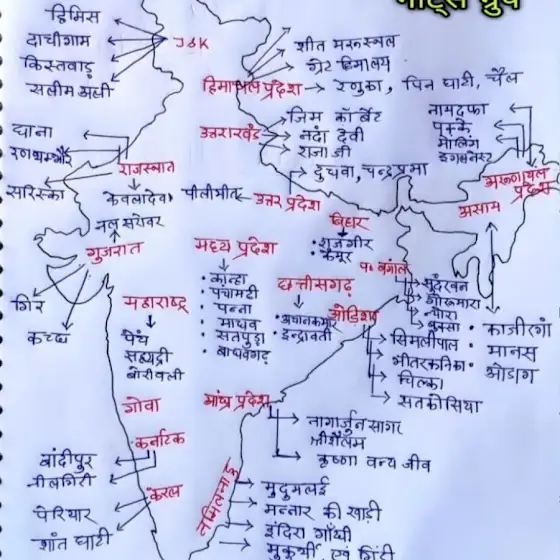 नोट्स ग्रुप
हिमिस
दाचीगाम
किस्तवाड़
सलीम अली
J&K
शीत मरूस्थल
ग्रेट हिमालय
हिमाचल प्रदेश
रेणुका, पिन घाटी, चैल
उत्तराखंड
जिम कॉर्बेट
नंदा देवी
राजा जी
नामदफा
पक्के
मोलिंग
ईगलनेस्ट
अरूणाचल
प्रदेश
असाम
काजीरंगा
मानस
ओडांग
घाना
रणथम्भौर
सरिस्का
राजस्थान
केवलादेव
पीलीभीत
उत्तर प्रदेश
दुधवा, चन्द्रप्रभा
बिहार
राजगीर
कैमूर
प० बंगाल
सुंदरवन
गोरूमारा
न्योरा
बुक्सा
नल सरोवर
गुजरात
गिर
कच्छ
मध्य प्रदेश
कान्हा
पंचामढी
पन्ना
माधव
सतपुड़ा
बाधवगढ़
छत्तीसगढ़
अचानकमार
इन्द्रावती
ओडिशा
सिमलीपाल
भीतरकनिका
चिल्का
सतकोसिया
महाराष्ट्र
पेंच
सह्याद्री
बोरीवली
गोवा
आंध्र प्रदेश
नागार्जुन सागर
श्रीशैलम
कृष्णा वन्य जीव
कर्नाटक
बांदीपुर
नीलगिरी
केरल
पेरियार
शांत घाटी
तमिलनाडु
मुदुमलई
मन्नार की खाड़ी
इंदिरा गाँधी
मुकुर्थी एवं गिंडी